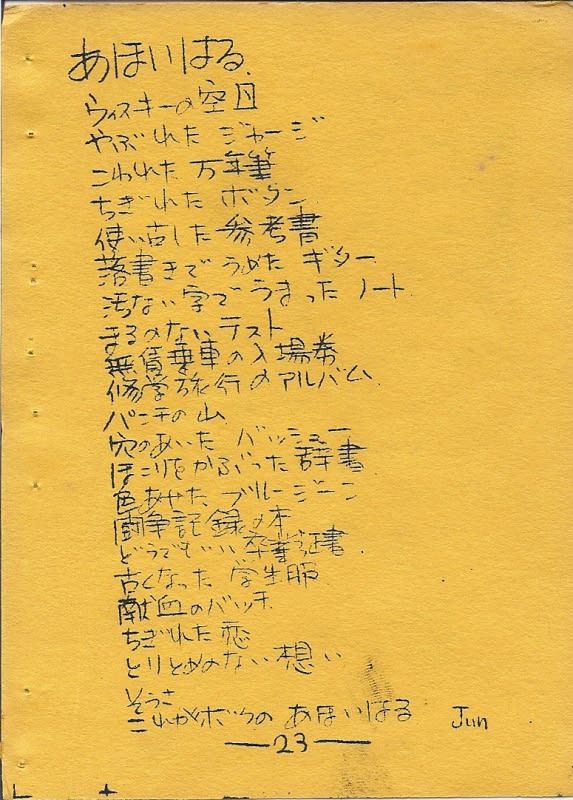 あほいはる
ウィスキーの空ビン
やぶれた ジャージ
こわれた 万年筆
ちぎれた ボタン
使い古した 参考書
落書きで うめた ギター
汚ない 字で うまった ノート
まるのない テスト
無賃乗車の入場券
修学旅行のアルバム
パンチの山
穴のあいた バッシュー
ほこりをかぶった辞書
色あせた ブルージーン
闘争記録の本
どうでもいい卒業証書
古くなった 学生服
献血のバッチ
ちぎれた恋
とりとめのない想い
そうさ
これがボクの あほいはる Jun
—23—